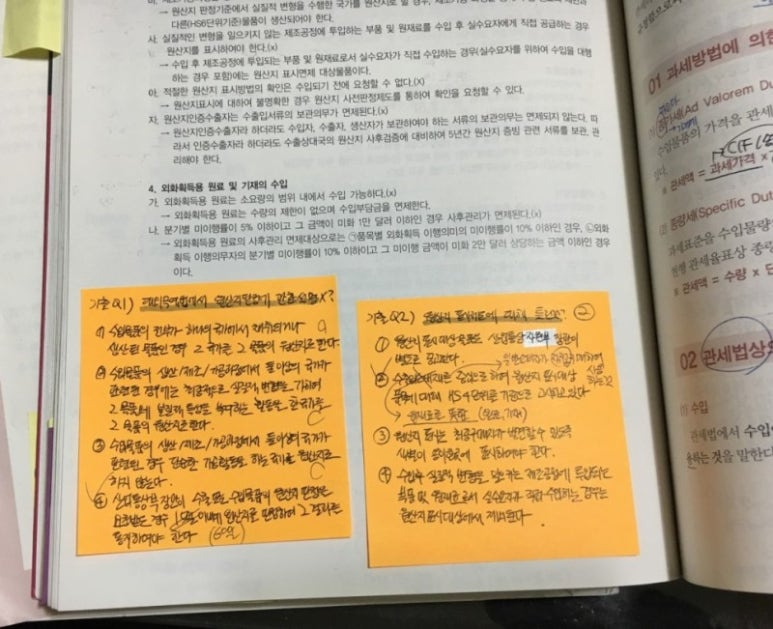 → 원산지 판정기준에서 실질적 변형을 수행한 국가를 원산지로 할 경우,
다른(HS6단위기준)물품이 생산되어야 한다.
사. 실질적인 변형을 일으키지 않는 제조공정에 투입되는 부품 및 원재료를 수입 후 실수요자에게 직접 공급하는 경우
원산지를 표시하여야 한다.(x)
→ 수입 후 제조공정에 투입되는 부품 및 원재료로서 실수요자가 직접 수입하는 경우(실수요자를 위하여 수입을 대행
하는 경우 포함)에는 원산지 표시면제 대상물품이다.
아. 적절한 원산지 표시방법의 확인은 수입되기 전에 요청할 수 없다.(x)
→ 원산지표시에 대하여 불명확한 경우 원산지 사전판정제도를 통하여 확인을 요청할 수 있다.
자. 원산지인증수출자는 수출입서류의 보관의무가 면제된다.(x)
→ 원산지인증수출자라 하더라도 수입자, 수출자, 생산자가 보관하여야 하는 서류의 보관의무는 면제되지 않는다. 따
라서 인증수출자라 하더라도 수출상대국의 원산지 사후검증에 대비하여 5년간 원산지 증빙 관련 서류를 보관, 관
리해야 한다.
4. 외화획득용 원료 및 기재의 수입
가. 외화획득용 원료는 소요량의 범위 내에서 수입 가능하다.(x)
→ 외화획득용 원료는 수량의 제한이 없으며 수입부담금을 면제한다.
나. 분기별 미이행률이 5% 이하이고 그 금액이 미화 1만 달러 이하인 경우 사후관리가 면제된다.(x)
→ 외화획득용 원료의 사후관리 면제대상으로는 ㉠품목별 외화획득 이행의미의 미이행률이 10% 이하인 경우, ㉡외화
획득 이행의무자의 분기별 미이행률이 10% 이하이고 그 미이행 금액이 미화 2만 달러 상당하는 금액 이하인 경우
이다.
기출Q1) 대외무역법에서 원산지판정에 관한 설명 X?
① 수입물품의 전부가 하나의 국가에서 채취되거나
생산된 물품인 경우 그 국가를 그 물품의 원산지로 한다.
② 수입물품의 생산/제조/가공과정에서 둘이상의 국가가
관련된 경우에는 최종적으로 실질적 변형을 가하여
그 물품에 본질적 특성을 부여하는 활동을 한 국가를
그 물품의 원산지로 한다.
③ 수입물품의 생산/제조/가공과정에서 둘이상의 국가가
관련된 경우 단순한 가공활동을 하는 국가를 원산지로
하지 않는다.
④ 산업통상부장관의 수출 또는 수입물품의 원산지 판정을
요청받은 경우 이내에 원산지를 판정하여 그 결과를
통지하여야 한다 (60일)
기출Q2) 원산지 표시제도에 대해 틀린것? ②
① 원산지 표시대상물품은 산업통상자원부장관이
별도로 공고한다.
② 수입원재료를 중심으로 하여 원산지 표시대상
물품에 대해 HS 4단위를 기준으로 고시하고 있다
(원료, 기재)
③ 원산지 표시는 최종구매자가 판별할 수 있도록
식별이 용이한 곳에 표시하여야 한다.
④ 수입후 실질적 변형을 일으키는 제조공정에 투입되는
부품 및 원재료로서 실수요자가 직접 수입하는 경우는
원산지표시대상에서 제외한다.
01 과세방법에 의한
(Ad Valorem Du
수입물품의 가격을 과세
있다.
CIF
* 관세액 = 과세가격 ×
(2) 종량세(Specific Dut
과세표준을 수입물량
현행 관세율표상 종량
* 관세액 = 수량 × 단
02 관세법상의
(1) 수입
관세법에서 수입
을 말한다